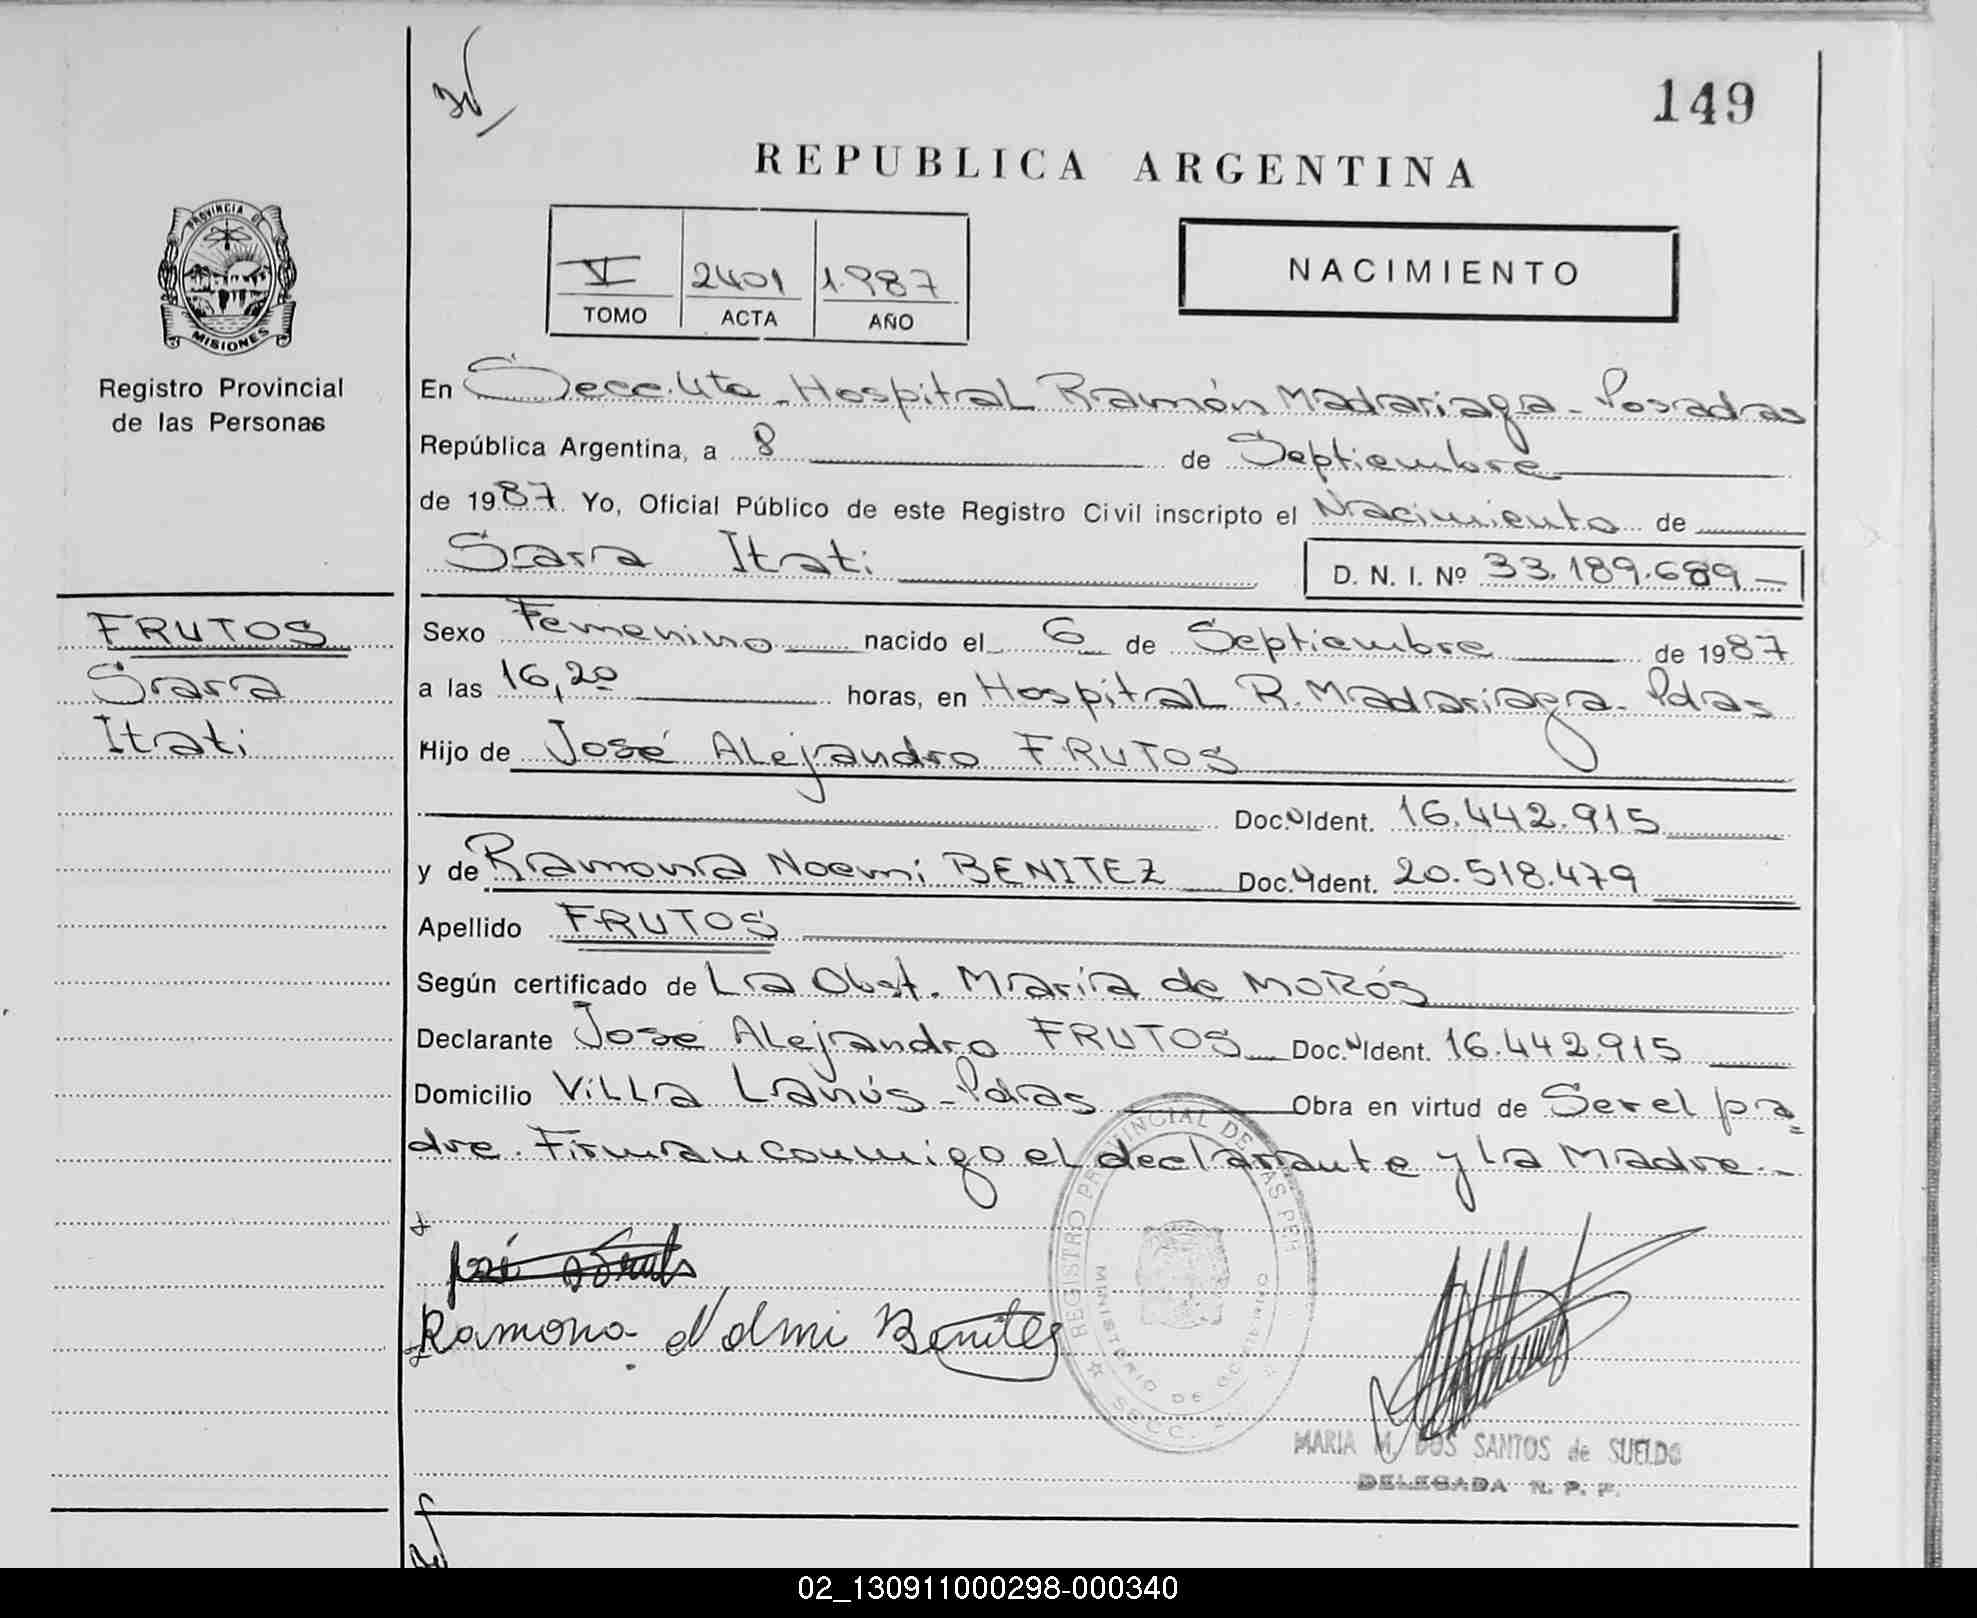 149
REPUBLICA ARGENTINA
V 2401 1.987
TOMO ACTA AÑO
NACIMIENTO
PROVINCIA DE
MISIONES
Registro Provincial
de las Personas
En Secc. 4ta - Hospital Ramón Madariaga - Posadas
República Argentina, a 8 de Septiembre
de 1987. Yo, Oficial Público de este Registro Civil inscripto el Nacimiento de
Sara Itati
D. N. I. Nº 33.189.689.-
FRUTOS
Sara
Itati
Sexo Femenino nacido el 6 de Septiembre de 1987
a las 16,20 horas, en Hospital R. Madariaga - Pdas
Hijo de José Alejandro FRUTOS
Doc. Ident. 16.442.915
y de Ramona Noemi BENITEZ Doc. Ident. 20.518.479
Apellido FRUTOS
Según certificado de La Obst. María de MORÓS
Declarante José Alejandro FRUTOS Doc. Ident. 16.442.915
Domicilio Villa Lanús - Pdas Obra en virtud de Ser el pa=
dre. Firman conmigo el declarante y la Madre.-
REGISTRO PROVINCIAL DE LAS PER
MINISTERIO DE GOBIERNO
SECC.
Ramona Noemi Benitez
MARIA M. DOS SANTOS de SUELDO
DELEGADA R. P. P.
02_130911000298-000340